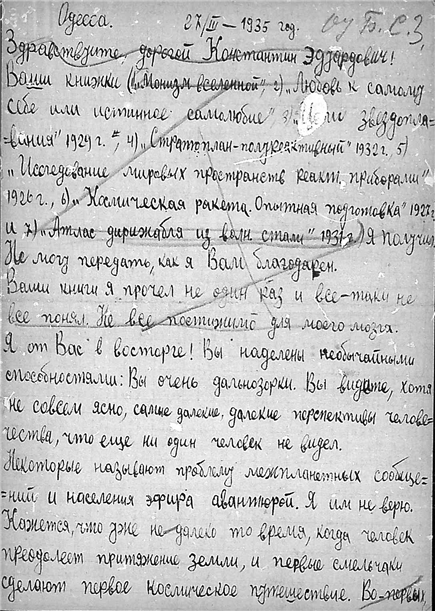 Одесса. 27/III – 1935 год.
Здравствуйте, дорогой Константин Эдуардович!
Ваши книжки (1) „Монизм вселенной" 2) „Любовь к самому
себе или истинное самолюбие" 3) „Цели звездопла-
вания" 1929 г., 4) „Стратоплан-полуреактивный" 1932 г., 5)
„Исследование мировых пространств реакт. приборами"
1926 г., 6) „Космическая ракета. Опытная подготовка" 1927 г.
и 7) „Атлас дирижабля из волн. стали" 1931 г.) я получил.
Не могу передать, как я Вам благодарен.
Ваши книги я прочел не один раз и все-таки не
все понял. Не все постижимо для моего мозга.
Я от Вас в восторге! Вы наделены необычайными
способностями: Вы очень дальнозорки. Вы видите, хотя
не совсем ясно, самые далекие, далекие перспективы челове-
чества, что еще ни один человек не видел.
Некоторые называют проблему межпланетных сообще-
ний и населения эфира авантюрой. Я им не верю.
Кажется, что уже не далеко то время, когда человек
преодолеет притяжение земли, и первые смельчаки
сделают первое космическое путешествие. Во-первых